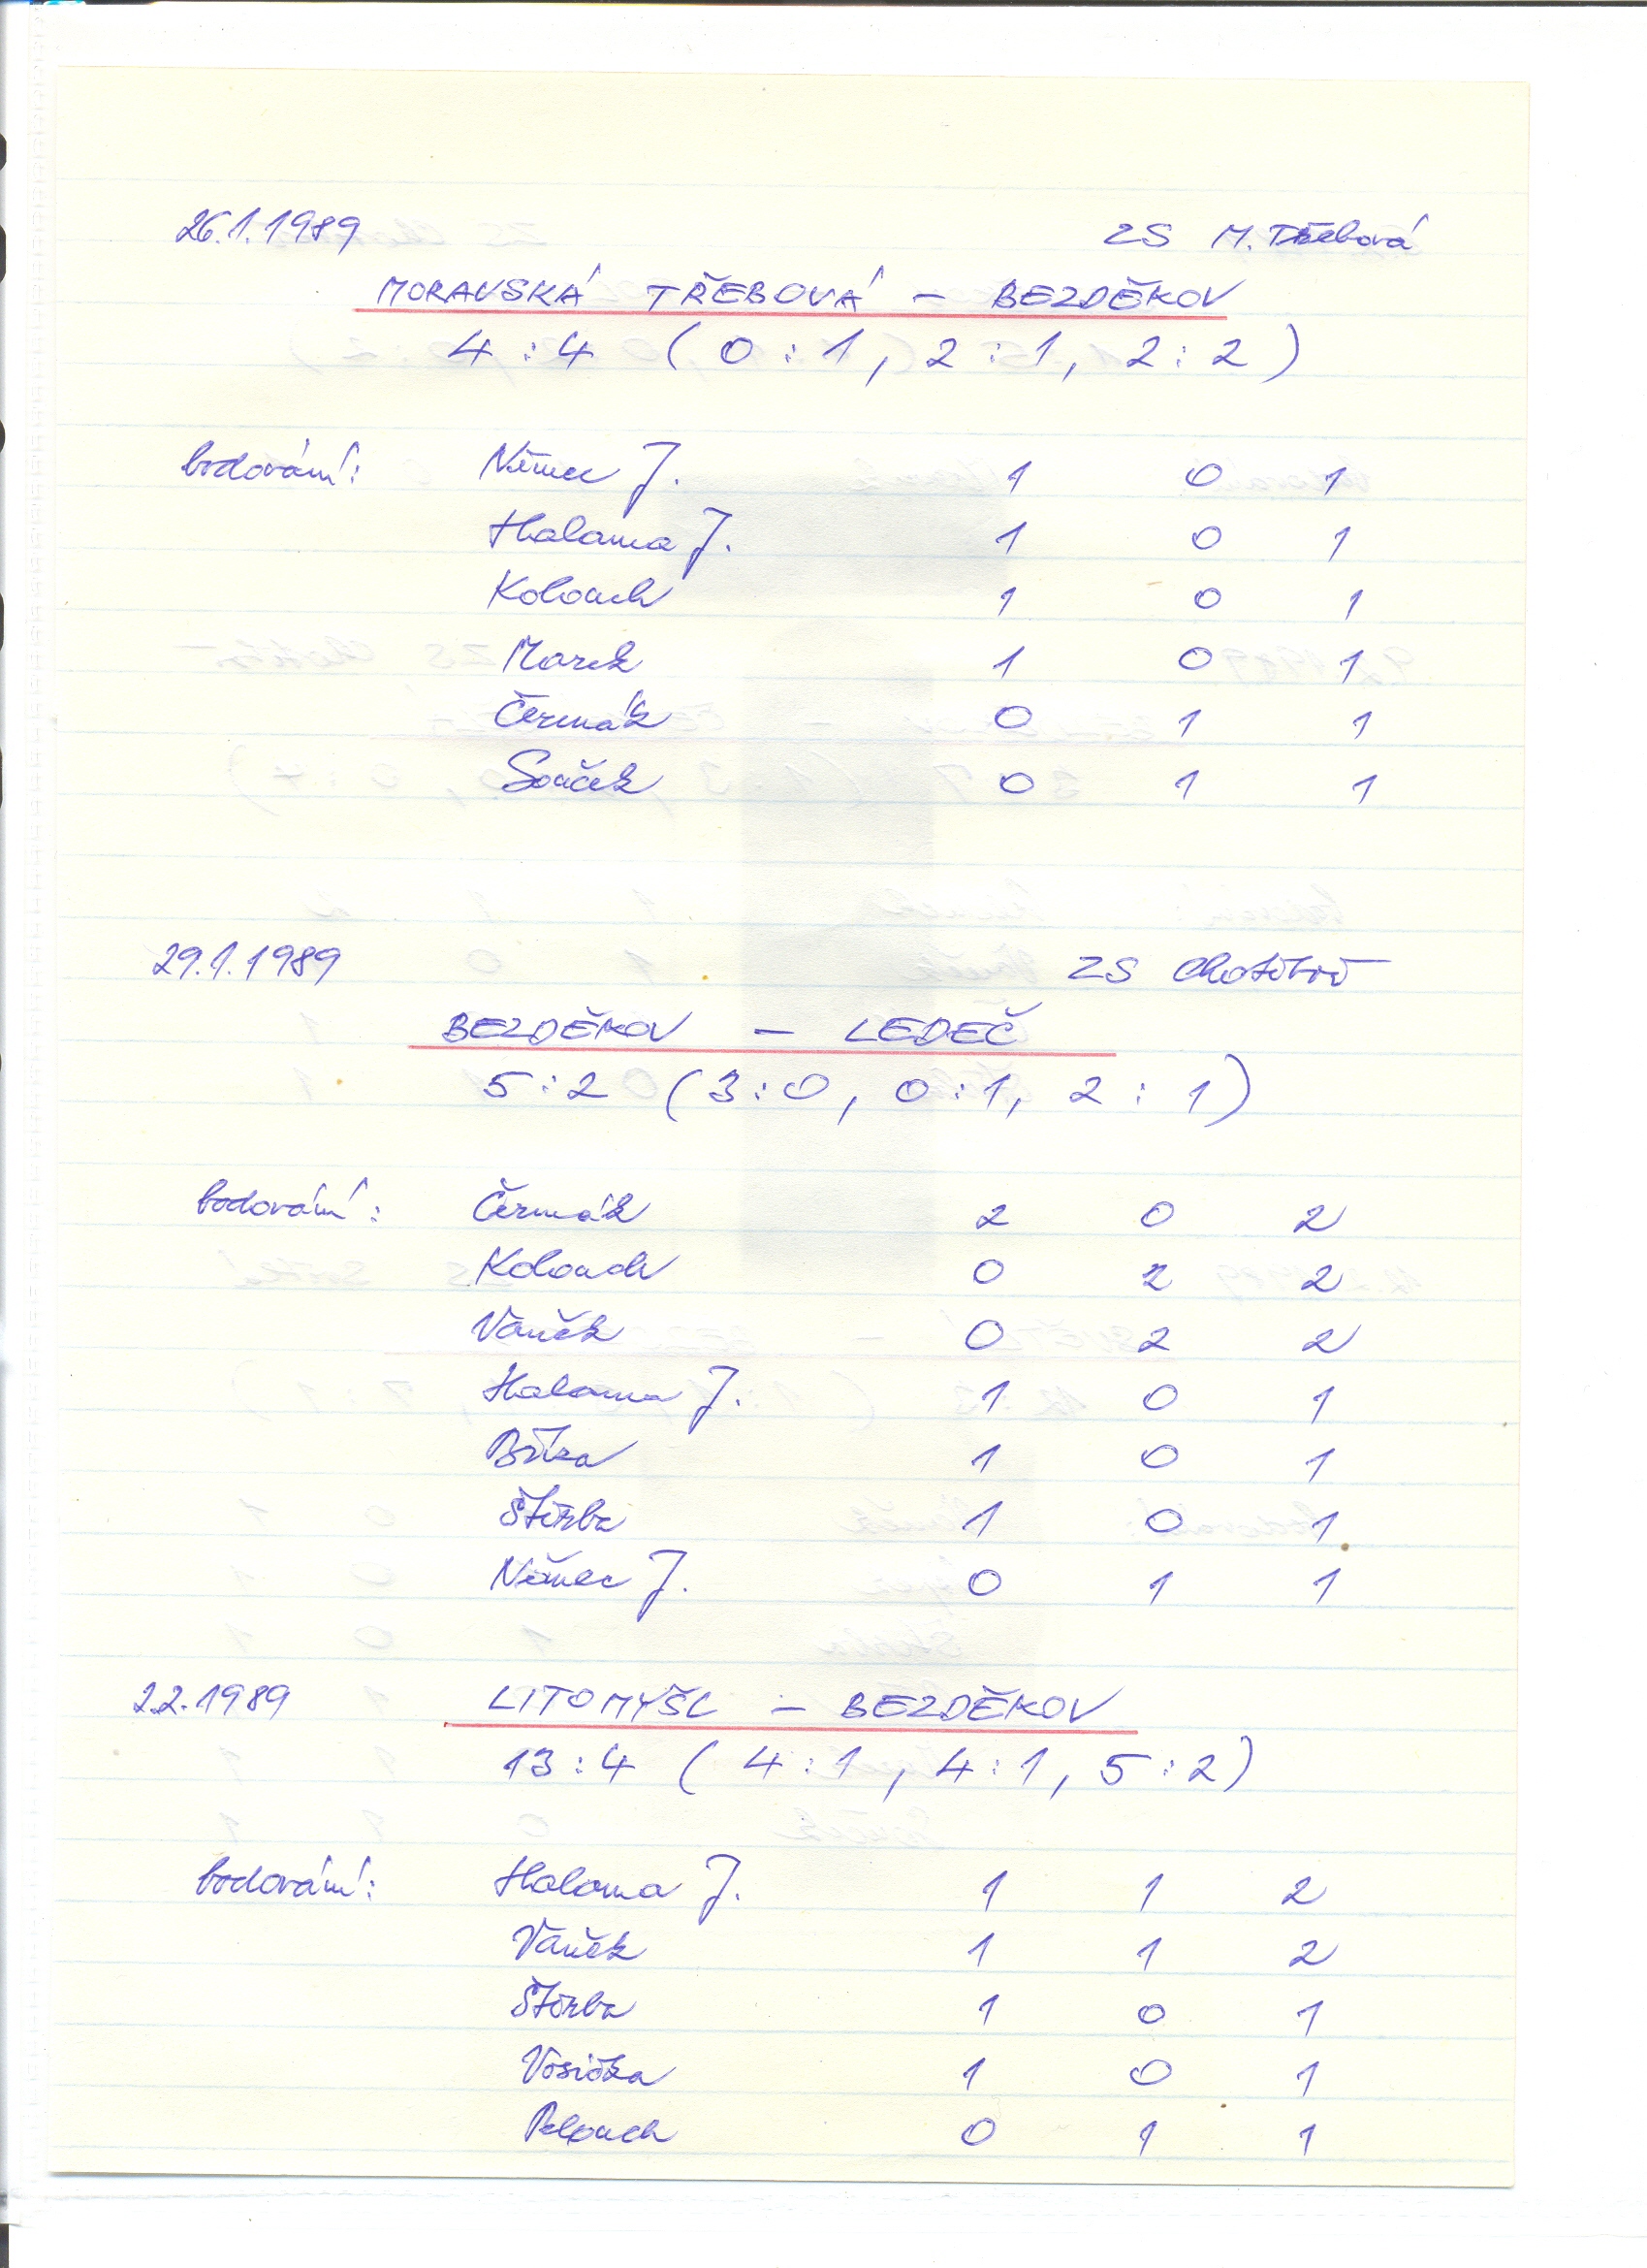 26.1.1989 ZS M. Třebová
MORAVSKÁ TŘEBOVÁ - BEZDĚKOV
4:4 (0:1, 2:1, 2:2)
bodování: Němec J. 1 0 1
Halama J. 1 0 1
Kolouch 1 0 1
Marek 1 0 1
Čermák 0 1 1
Souček 0 1 1
29.1.1989 ZS Chotěboř
BEZDĚKOV - LEDEČ
5:2 (3:0, 0:1, 2:1)
bodování: Čermák 2 0 2
Kolouch 0 2 2
Vaněk 0 2 2
Halama J. 1 0 1
Bříza 1 0 1
Štěrba 1 0 1
Němec J. 0 1 1
2.2.1989 LITOMYŠL - BEZDĚKOV
13:4 (4:1, 4:1, 5:2)
bodování: Halama J. 1 1 2
Vaněk 1 1 2
Štěrba 1 0 1
Vosička 1 0 1
0 1 1